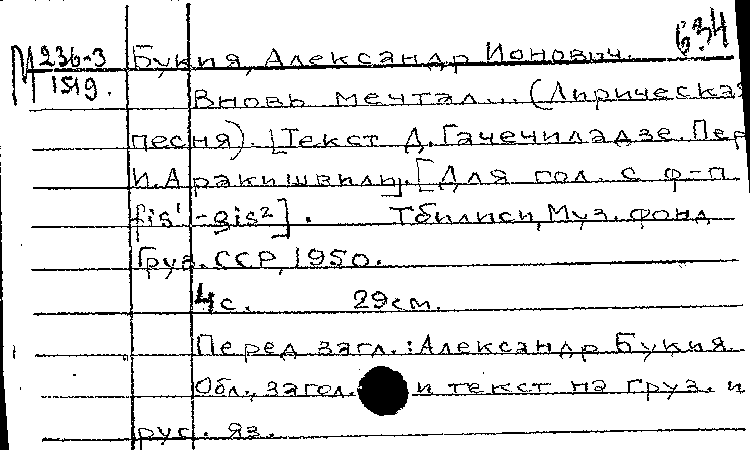 634
М 236-3
1519.
Букия, Александр Ионович.
Вновь мечтал... (Лирическая
песня). [Текст Д. Гачечиладзе. Пер
И. Аракишвили]. [Для гол. с ф-п
fis¹-gis²]. Тбилиси, Муз. фонд
Груз. ССР, 1950.
4 с. 29 см.
Перед загл.: Александр Букия.
Обл., загол. и текст на груз. и
рус. яз.